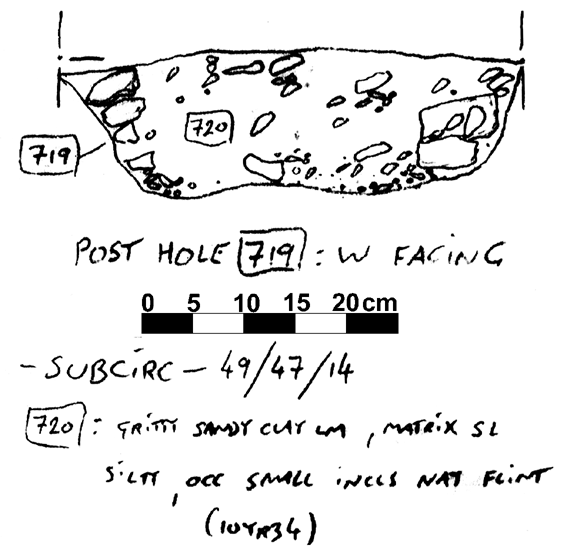 720
719
POST HOLE 719 : W FACING
0 5 10 15 20cm
- SUBCIRC - 49/47/14
720 : GRITTY SANDY CLAY LM , MATRIX SL
SILTY, OCC SMALL INCLS NAT FLINT
(10YR34)